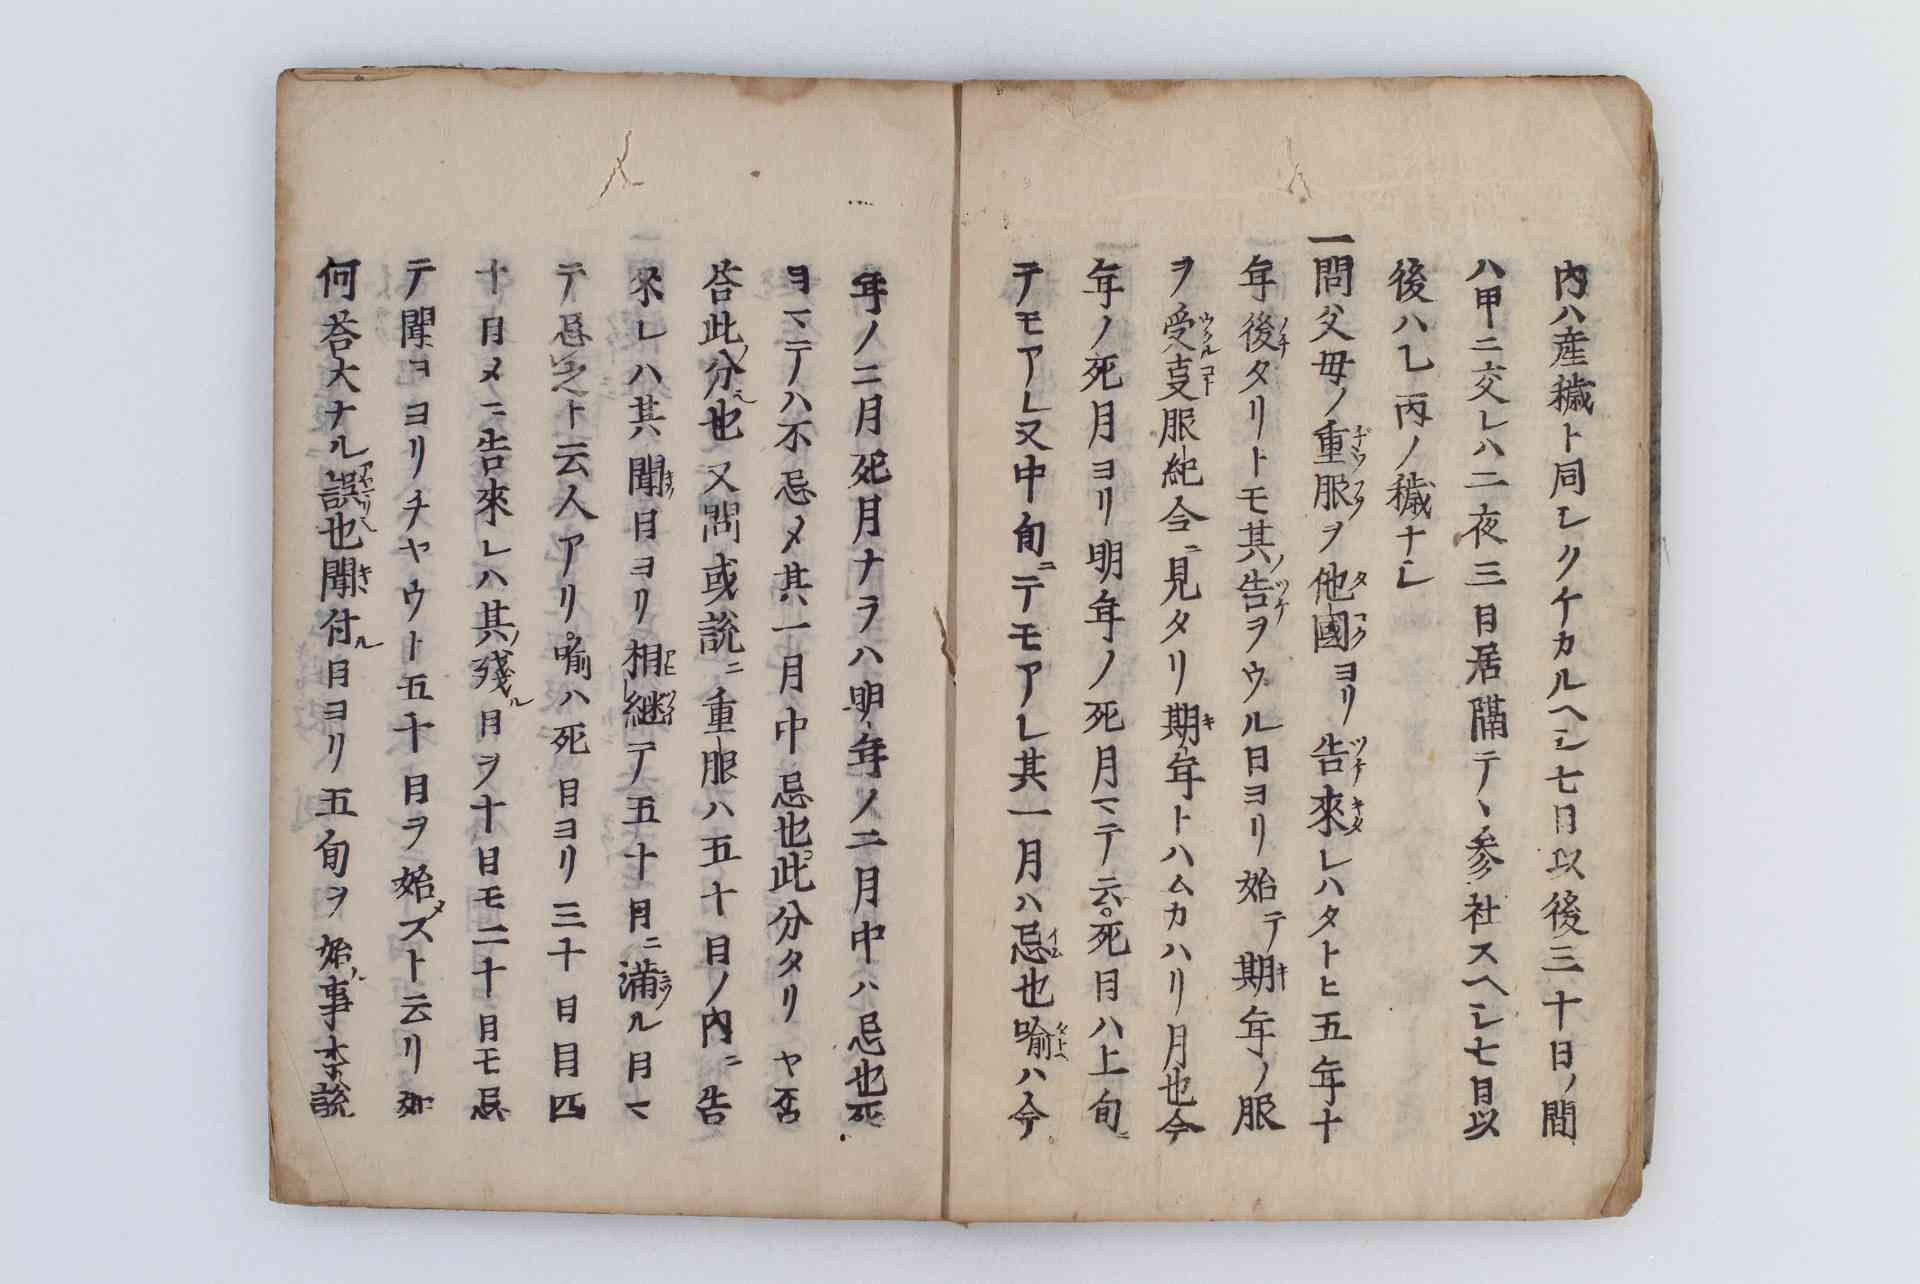 内ハ産穢ト同シクイケカルヘシ七日以後三十日ノ間
ハ甲ニ交レハ二夜三日居隔テヽ参社スヘシ七日以
後ハ乙丙ノ穢ナシ
一問父母ノ重服ヲ他國ヨリ告來レハタトヒ五年十
年後タリトモ其告ヲウル日ヨリ始テ期年ノ服
ヲ受支服紀令ニ見タリ期年トハムカハリ月也今
年ノ死月ヨリ明年ノ死月マテ云死日ハ上旬ニ
テモアレ又中旬ニテモアレ其一月ハ忌也喩ハ今
年ノ二月死月ナラハ明年ノ二月中ハ忌也死
ヨマテハ不忌メ其一月中忌也此分タリヤ否
答此分也又問或説ニ重服ハ五十日ノ内ニ告
來レハ其聞日ヨリ相継テ五十日ニ満ル月マ
テ忌之ト云人アリ喩ハ死日ヨリ三十日目四
十日メニ告來レハ其残日ヲ十日モ二十日モ忌
テ聞ヨリチヤウト五十日ヲ始ストスリ如
何答大ナル誤也聞付日ヨリ五旬ヲ始事本説